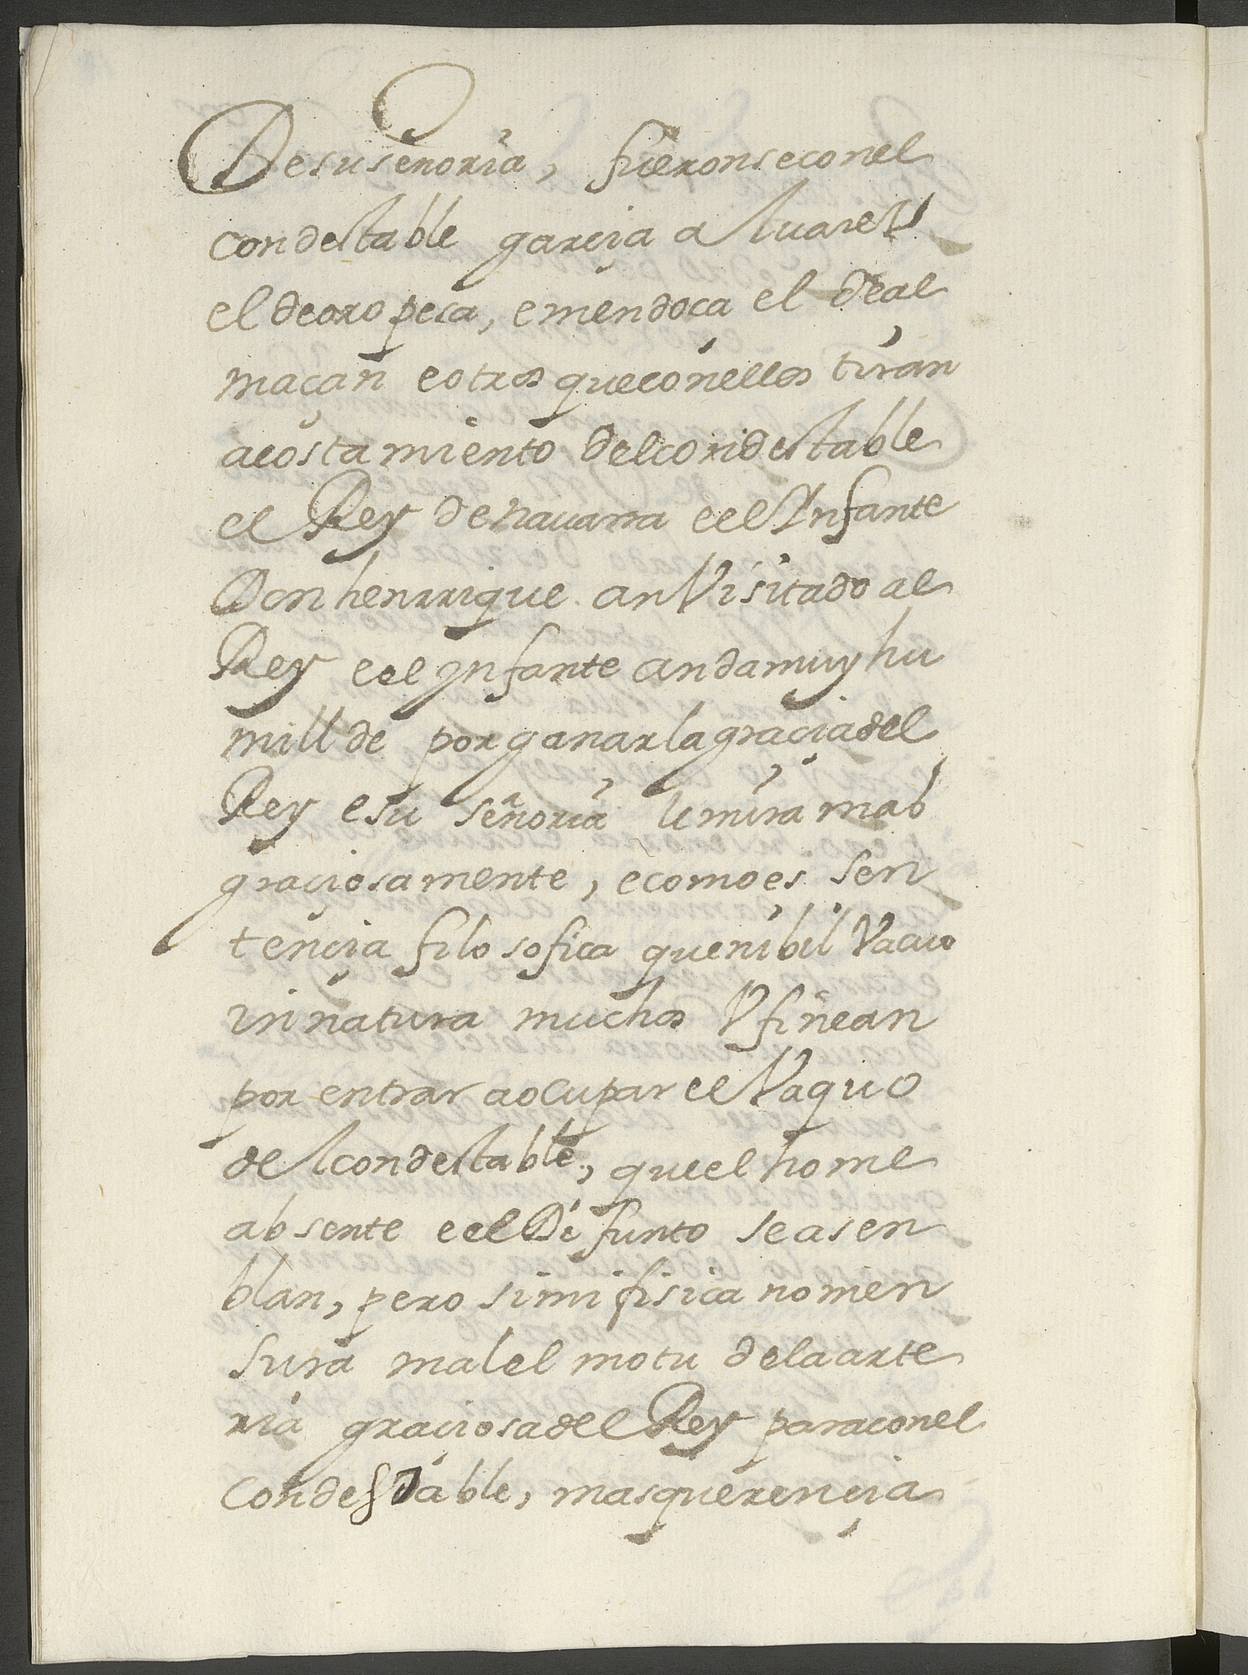 De su señoria, fueronse con el
condestable garçia aluarez
el de oropesa, e mendoça el de al
maçan e otros que con ellos tiran
acostamiento del condestable
el Rey de nauarra e el Infante
Don henrrique an Visitado al
Rey e el Infante anda muy hu
millde por ganar la graçia del
Rey e su señoria le mira mas
graçiosamente, e como es sen
tençia filosofica que nihil Vacuo
in natura muchos Vfinean
por entrar a ocupar el Vaquo
del condestable, que el home
absente e el Difunto se asen
blan, pero si mi fisica no men
sura mal el motu de la arte
ria graçiosa del Rey para con el
Condestable, mas querençia